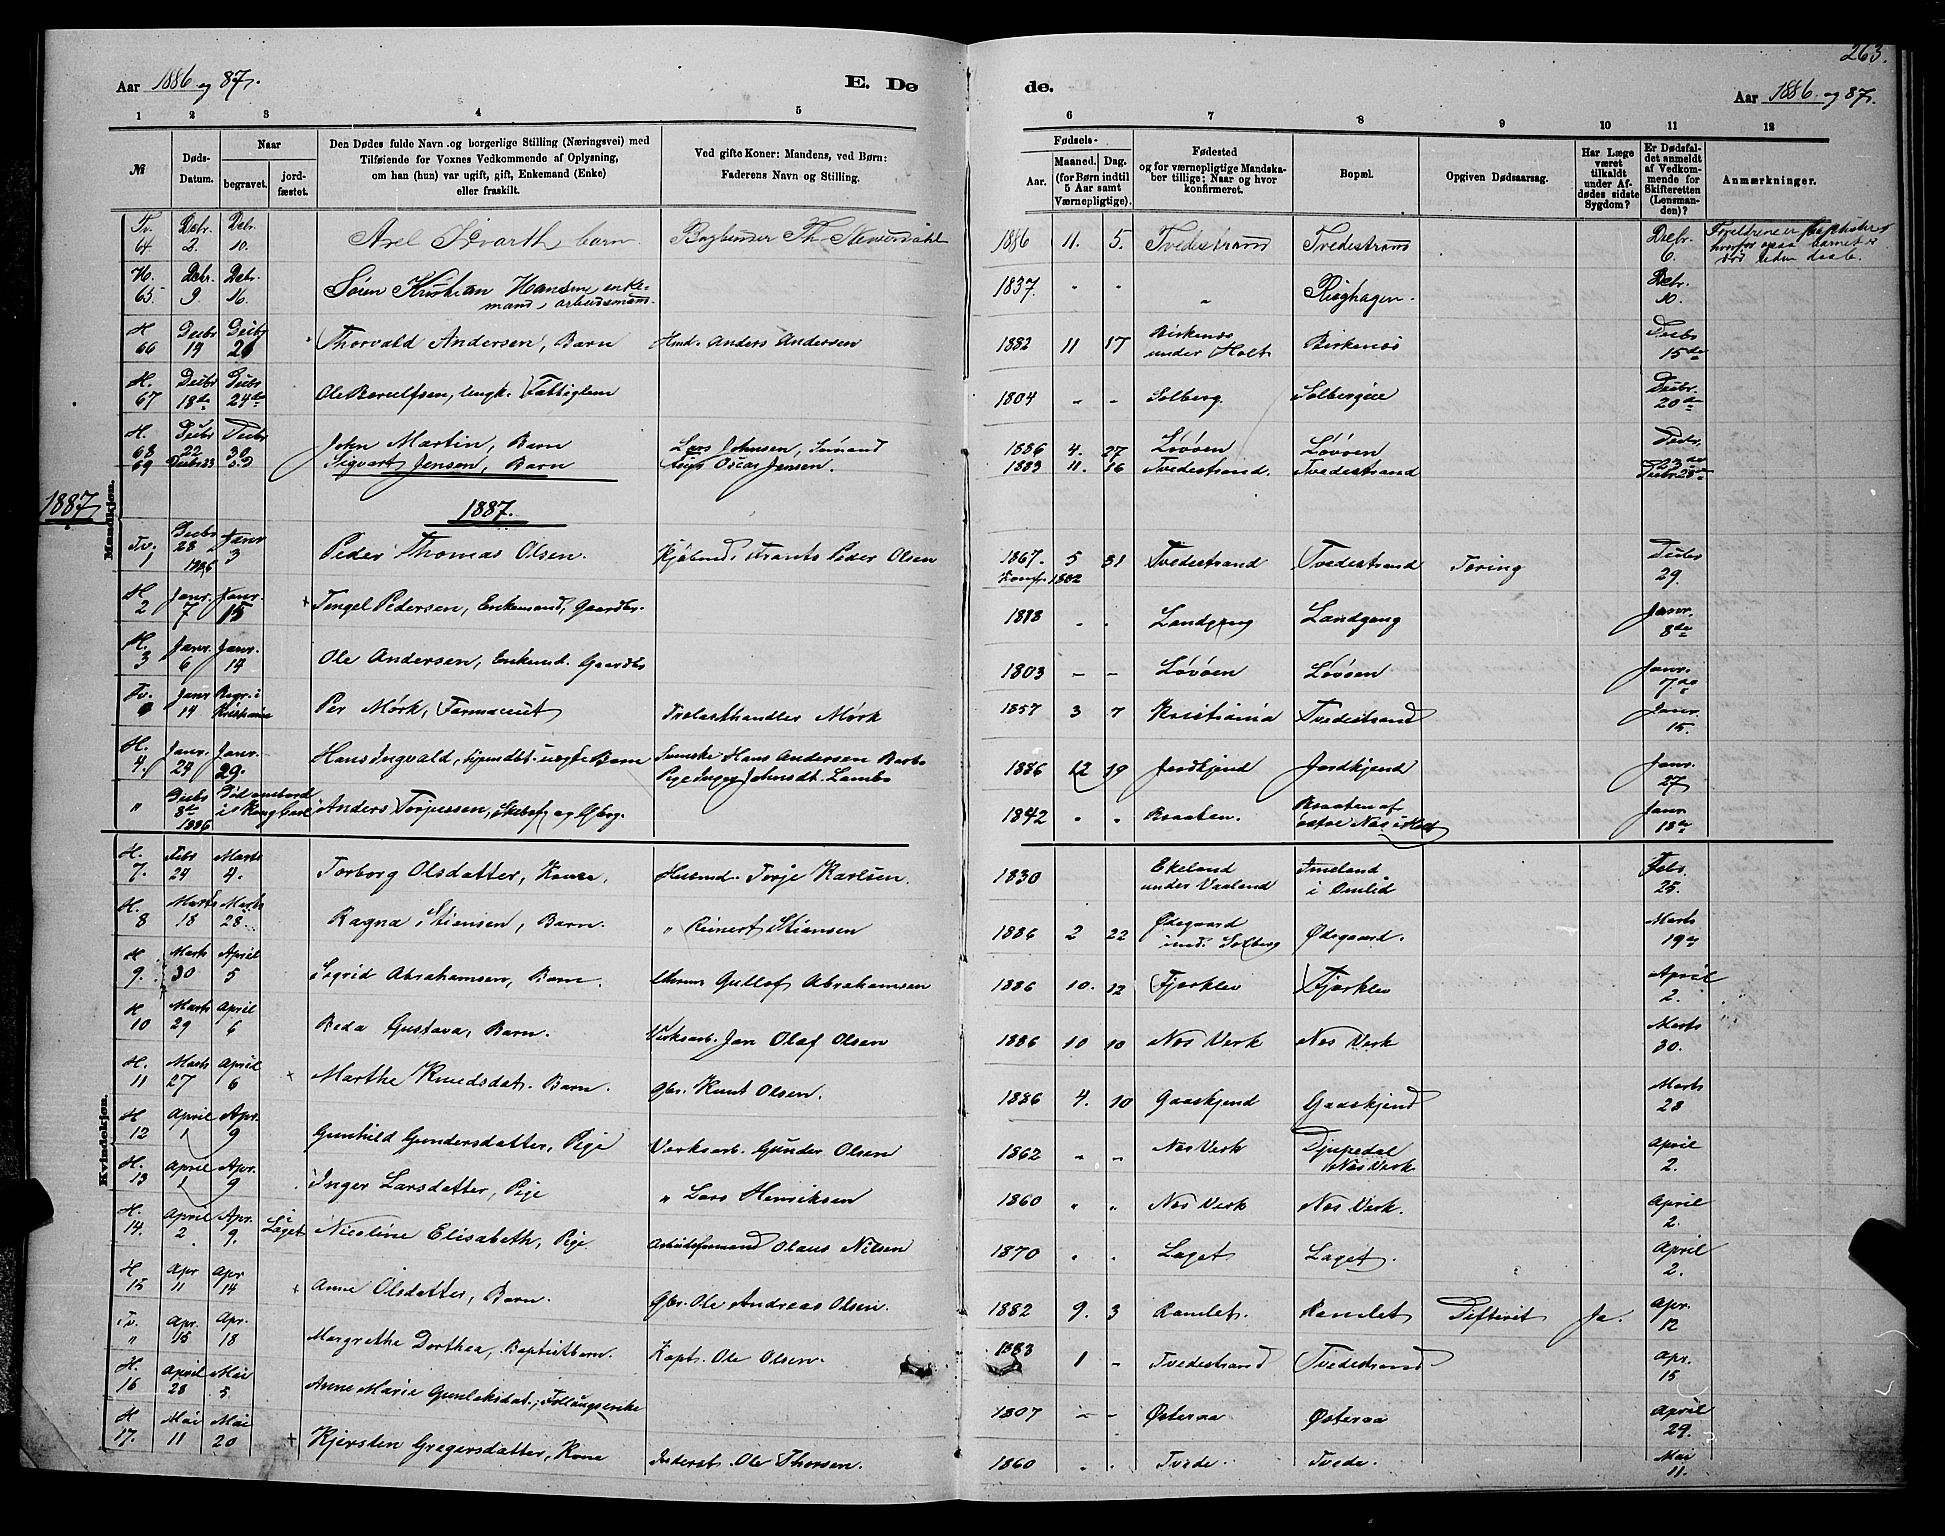 263.
Aar 1886 og 87.
E. Dø
de.
Aar 1886 og 87.
1 2 3 4 5 6 7 8 9 10 11 12
№
Døds-
Datum.
Naar
begravet.
jord-
fæstet.
Den Dødes fulde Navn og borgerlige Stilling (Næringsvei) med
Tilføiende for Voxnes Vedkommende af Oplysning,
om han (hun) var ugift, gift, Enkemand (Enke)
eller fraskilt.
Ved gifte Koner: Mandens, ved Børn:
Faderens Navn og Stilling.
Fødsels-
Aar.
Maaned. Dag.
(for Børn indtil
5 Aar samt
Værnepligtige).
Fødested
og for værnepligtige Mandska-
ber tillige: Naar og hvor
konfirmeret.
Bopæl.
Opgiven Dødsaarsag.
Har Læge
været
tilkaldt
under Af-
dødes sidste
Sygdom?
Er Dødsfal-
det anmeldt
af Vedkom-
mende for
Skifteretten
(Lensman-
den)?
Anmærkninger.
Tv. 64 Debr. 2. Debr. 10. Axel barn Th. 1886 11. 5. Tvedestrand Tvedestrand Debr. 6. Forældrene er Baptister
uden daab.
H. 65 Debr. 9 Debr. 16. Søren Kristian Hansen, enke-
mand, arbeidsmand. 1837. " " " Debr. 10.
H 66 Decbr 19 Decbr 21 Thorvald Andersen, Barn Hmd. Anders Andersen 1882 11 17 Birkenæs
under Holt Birkenæs Decbr 15de
H. 67 Decbr 18de Decbr 24de Ole Berulfsen, Ungk. Fattiglem 1804 - - Solberg. Solbergeie Decbr. 20de
H. 68 Decbr 22 Decbr 30 John Martin, Barn Lars Johnsen, Sømand 1886 4. 27 Løvøen Løvøen Decbr. 23de
69 Decbr 23 Sigvart Jensen, Barn Oscar Jensen. 1883 11. 16 Tvedestrand. Tvedestrand Decbr 28de
1887
Mandkjøn.
1887.
Tv. 1 Decbr 28 1886 Janr 3 Peder Thomas Olsen. Kjøbmd. Peder Olsen 1867. 5 31 Tvedestrand Tvedestrand Tæring Decbr 29.
Konf. 1882
H 2 Janr. 7 Janr. 15 + Tengel Pedersen, Enkemand, Gaardbr. 1818 . . Landgang Landgang Janr. 8de
H. 3 Janr. 6 Janr. 14 Ole Andersen, Enkemd. Gaardbr 1803 - - Løvøen Løvøen Janr. 7de
Tv. Janr 14 Begr. i Kristiania Per Mørk, Farmaceut Trælasthandler Mørk 1857 3 7 Kristiania Tvedestrand Janr. 15.
H. 4. Janr. 24 Janr. 29. Hans Ingvald, uægte Barn Svenske Hans Andersen
Pige Inger Johnsdt. 1886 12 19 Jordkjend Jordkjend Janr. 27
" Decbr 8de 1886 i Kong Carl Anders Torjussen, 1842 " " Braaten. Braaten af
østre Næs i Holt Janr. 18de
Kvindekjøn.
H. 7. Febr 24 Marts 4. Torborg Olsdatter, Kone. Husmd. Torje Karlsen. 1830 Ekeland
under Vaaland
i Omlid Febr. 25.
H. 8 Marts 18 Marts 23. Ragna Stiansen, Barn. " Reinert Stiansen 1886 2 22 Ødegaard
und. Solberg Ødegaard. Marts 19de
H 9. Marts 30 April 5 Sigrid Abrahamsen, Barn. Gullof Abrahamsen 1886 10. 12 Fjærklev Fjærklev April 2.
H 10 Marts 29 April 6 Beda Gustava, Barn. Verksarb. Jan Olaf Olsen 1886 10 10 Næs Verk Næs Verk Marts 30.
H. 11 Marts 27 April 6 + Marthe Knudsdat. Barn. Gbr. Knut Olsen. 1886 4. 10 Gaaskjend Gaaskjend Marts 28
H 12 April 1 Apr. 9 Gunhild Gundersdatter, Pige Verksarb. Gunder Olsen 1862 " " Næs Verk Djupedal
Næs Verk April 2.
H. 13 April 1 Apr. 9 Inger Larsdatter, Pige " Lars Henriksen 1860 " " Næs Verk Næs Verk. April 2.
H. 14. April 2 Apr. 9. i Laget Nicoline Elisabeth, Pige Arbeidsformand Olaus Nilsen 1870 " . Laget Laget. April 2.
H 15 Apr 11 Apr 14 + Anne Olsdatter, Barn. Gbr. Ole Andreas Olsen. 1882 9. 3 Ramlet. Ramlet Difterit Ja. Apr. 12
Tv. " Apr. 15 Apr. 18 Margrethe Dorthea, Baptistbarn. Kapt. Ole Olsen. 1883 1 - Tvedestrand Tvedestrand Apr. 15
H. 16 April 28 Mai 5. Anne Marie Gunlaksdat., 1807 - - Østeraa Østeraa April 29.
H 17. Mai 11 Mai 20 + Kjersten Gregersdatter, Kone Inderst Ole Thorsen. 1860 " . Tvede. Tvede. Mai 11.